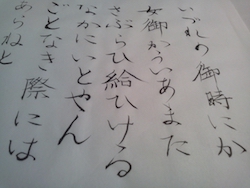 いづれの御時にか
女御かういあまた
さぶらひ給ひける
なかにいとやん
ごとなき際には
あらねど